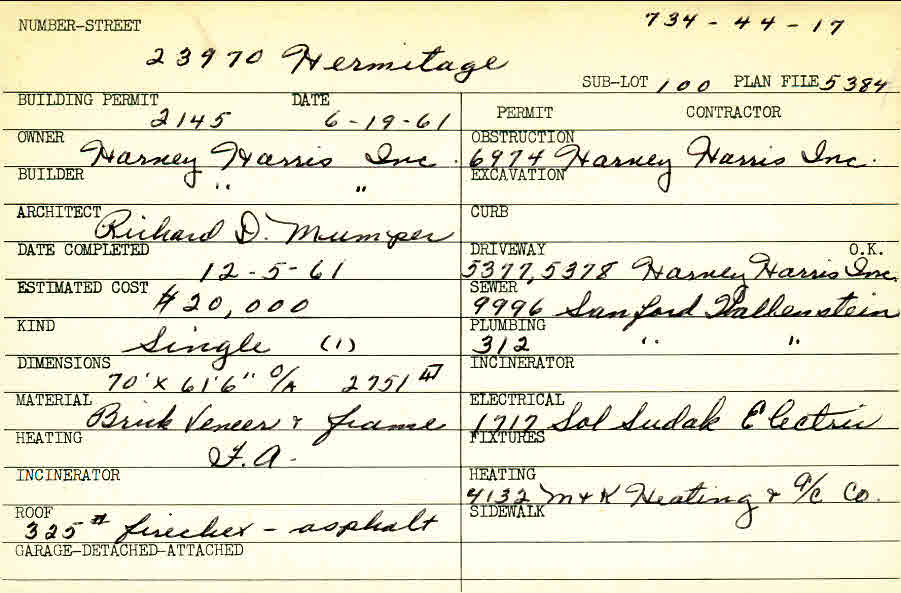 NUMBER-STREET 734-44-17
23970 Hermitage
SUB-LOT 100 PLAN FILE 5384
BUILDING PERMIT DATE
2145 6-19-61
PERMIT CONTRACTOR
OWNER
Harney Harris Inc.
OBSTRUCTION
6974 Harney Harris Inc.
BUILDER
" "
EXCAVATION
ARCHITECT
Richard D. Mumper
CURB
DATE COMPLETED
12-5-61
DRIVEWAY O.K.
5377, 5378 Harney Harris Inc.
ESTIMATED COST
$20,000
SEWER
9996 Sanford Wallenstein
KIND
Single (1)
PLUMBING
312 " "
DIMENSIONS
70' x 61'6" O/A 2751
INCINERATOR
MATERIAL
Brick Veneer & frame
ELECTRICAL
1717 Sol Sudak Electric
HEATING
F.A.
FIXTURES
INCINERATOR
HEATING
4132 M&K Heating & A/C Co.
ROOF
325# firechex - asphalt
SIDEWALK
GARAGE-DETACHED-ATTACHED